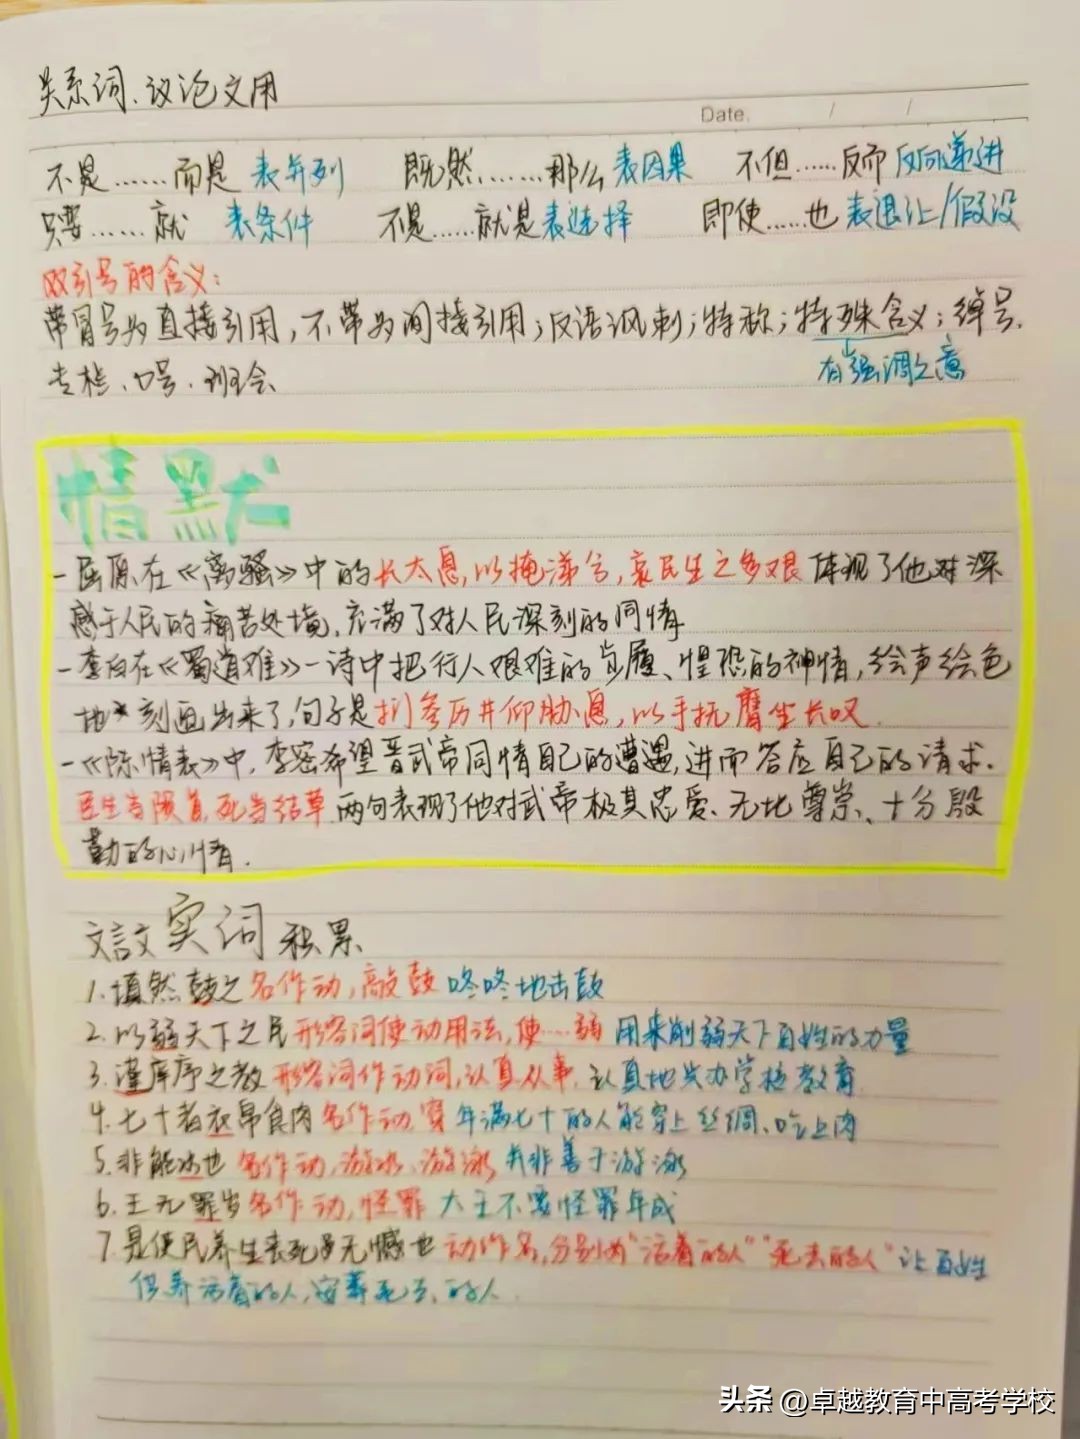 关系词、议论文用
Date.
不是……而是 表并列 既然……那么 表因果 不但……反而 反向递进
只要……就 表条件 不是……就是 表选择 即使……也 表退让/假设
双引号的含义：
带冒号为直接引用，不带为间接引用；反语讽刺；特称；特殊含义；绰号、
专栏、口号、班会
有强调之意
情默
- 屈原在《离骚》中的长太息以掩涕兮，哀民生之多艰 体现了他对深
感于人民的痛苦处境，充满了对人民深刻的同情
- 李白在《蜀道难》一诗中把行人艰难的步履、惶恐的神情，绘声绘色
地 刻画出来了，句子是扪参历井仰胁息，以手抚膺坐长叹
- 《陈情表》中，李密希望晋武帝同情自己的遭遇，进而答应自己的请求.
臣生当陨首，死当结草 两句表现了他对武帝极其忠爱、无比尊崇、十分殷
勤的心情.
文言文实词积累
1. 填然鼓之 名作动，敲鼓 咚咚地击鼓
2. 以弱天下之民 形容词使动用法，使……弱 用来削弱天下百姓的力量
3. 谨庠序之教 形容词作动词，认真从事，认真地兴办学校教育
4. 七十者衣帛食肉 名作动，穿 年满七十的人能穿上丝绸、吃上肉
5. 非能水也 名作动，游水、游泳 并非善于游泳
6. 王无罪岁 名作动，怪罪 大王不要怪罪年成
7. 是使民养生丧死无憾也 动作名，分别为“活着的人”“死去的人” 让百姓
供养活着的人，安葬死去的人
头条 @卓越教育中高考学校